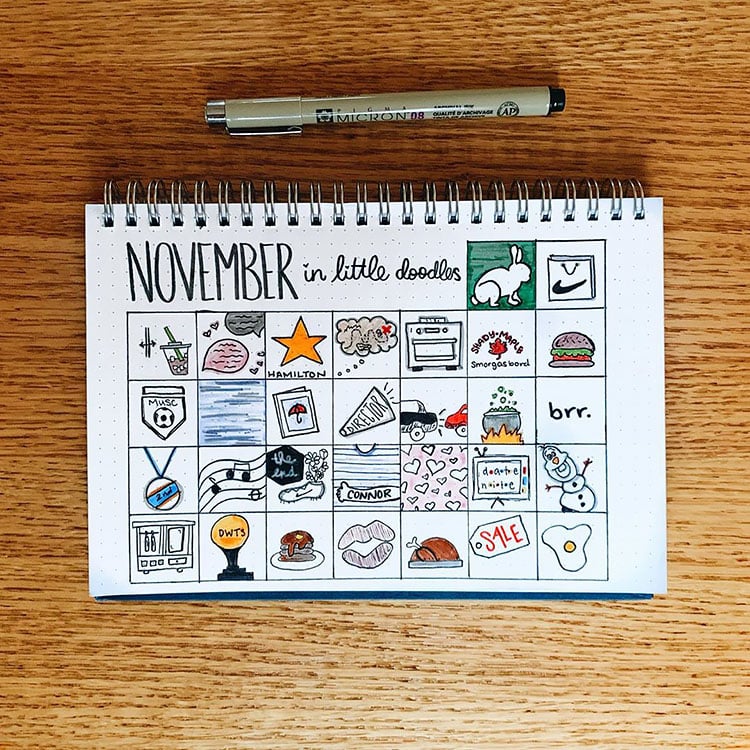 PIGMA
MICRON 08
QUALITÉ D'ARCHIVAGE
AP
NOVEMBER in little doodles
HAMILTON
SHADY MAPLE
Smorgasbord
MUSC
DIRECTOR
brr.
2nd
the
end
CONNOR
date
nite
DWTS
SALE